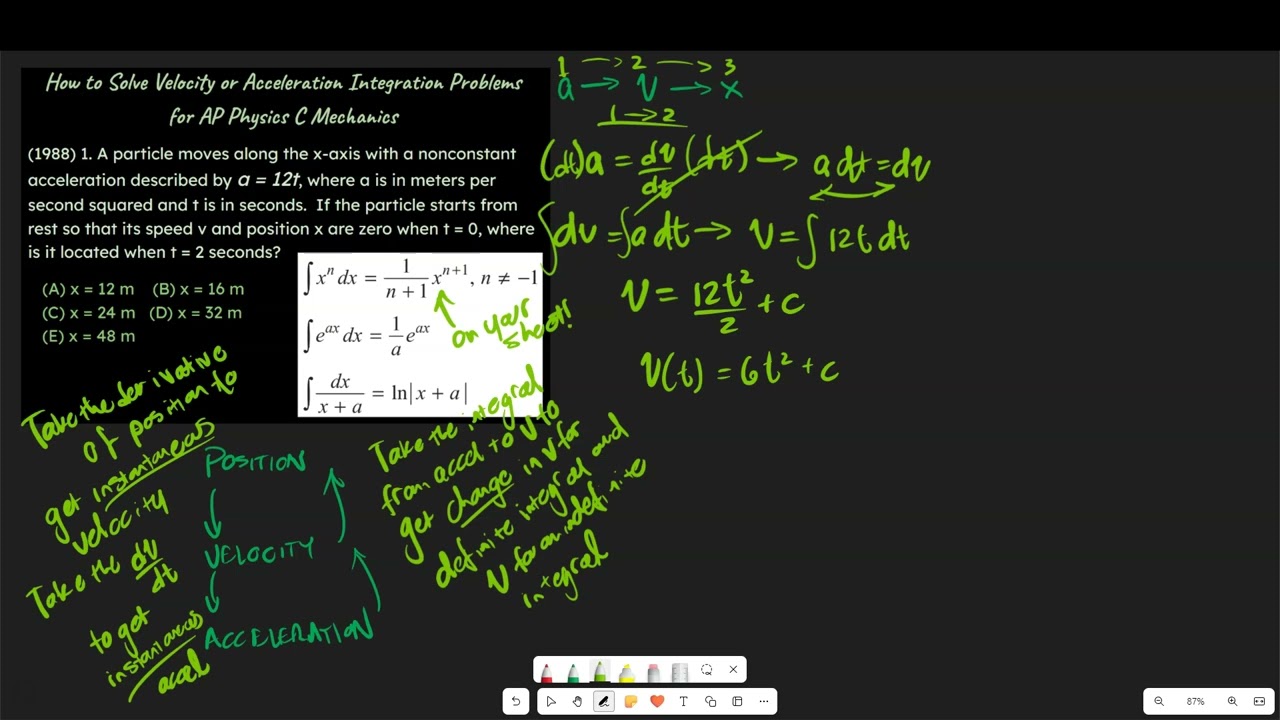 How to Solve Velocity or Acceleration Integration Problems
for AP Physics C Mechanics
(1988) 1. A particle moves along the x-axis with a nonconstant
acceleration described by a = 12t, where a is in meters per
second squared and t is in seconds.  If the particle starts from
rest so that its speed v and position x are zero when t = 0, where
is it located when t = 2 seconds?
(A) x = 12 m (B) x = 16 m
(C) x = 24 m (D) x = 32 m
(E) x = 48 m
∫xⁿ dx = 1/(n + 1) xⁿ⁺¹, n ≠ −1
∫eᵃˣ dx = 1/a eᵃˣ
∫dx/(x + a) = ln|x + a|
on your
sheet!
1 → 2 → 3
a → v → x
1 → 2
(dt)a = dv/dt (dt) → a dt = dv
∫dv = ∫a dt → v = ∫12t dt
v = 12t²/2 + c
v(t) = 6t² + c
Take the derivative
of position to
get instantaneous
velocity
Take the dv/dt
to get
instantaneous
accel
POSITION
VELOCITY
ACCELERATION
Take the integral
from accel to v to
get change in v for
definite integral and
v for an indefinite
integral
T
87%